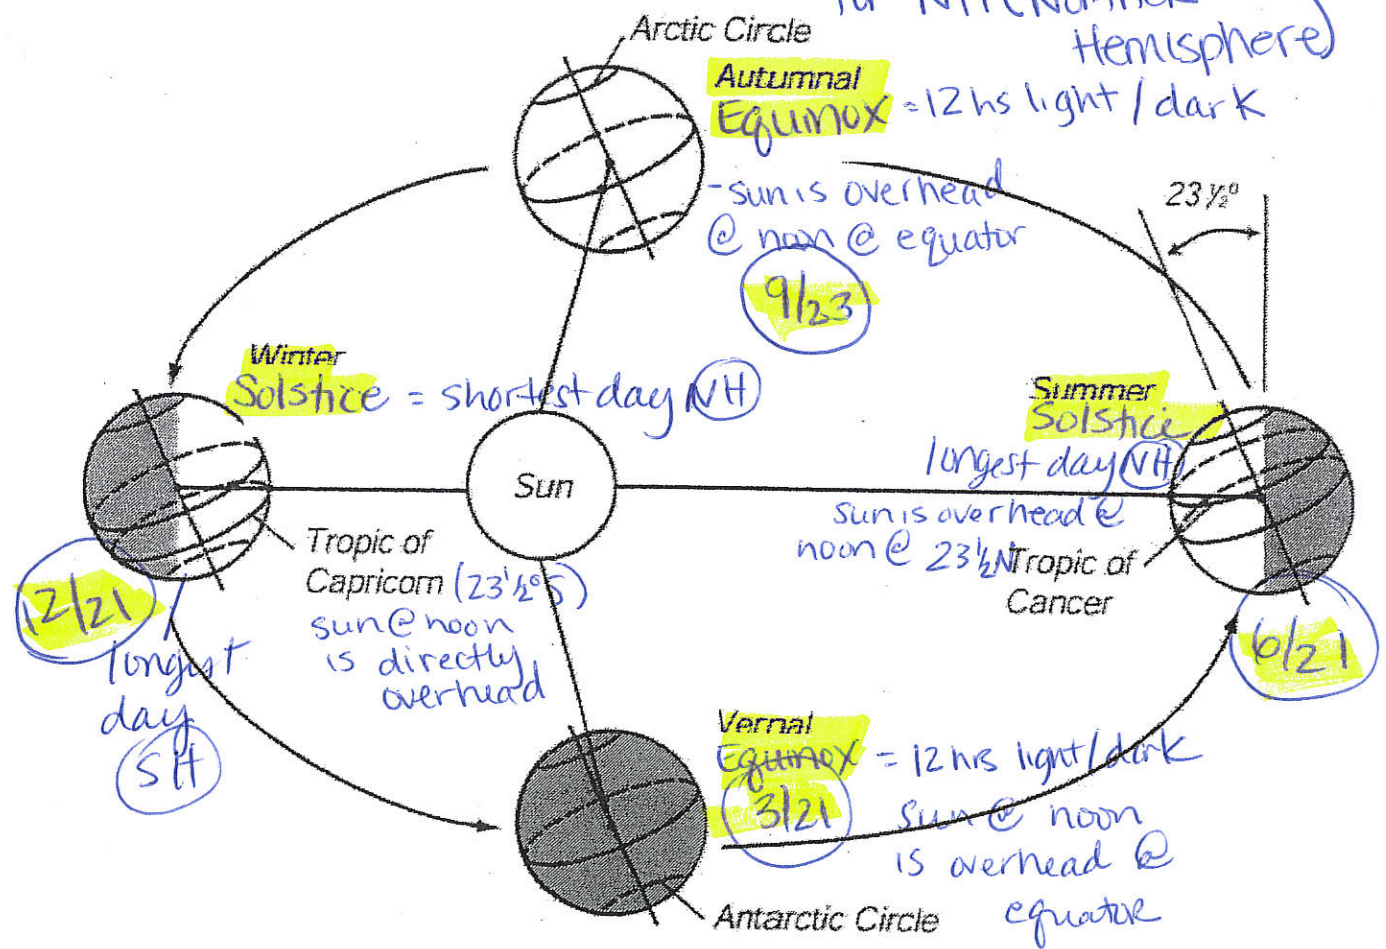 for NH (Northern
Hemisphere)
Arctic Circle
Autumnal
Equinox = 12 hs light / dark
- sun is overhead
@ noon @ equator
9/23
23½°
Winter
Solstice = shortest day NH
Summer
Solstice
longest day NH
sun is overhead @
noon @ 23½N
Tropic of
Cancer
6/21
Sun
Tropic of
Capricorn (23½°S)
sun @ noon
is directly
overhead
12/21
longest
day
SH
Vernal
Equinox = 12 hrs light/dark
3/21
sun @ noon
is overhead @
equator
Antarctic Circle